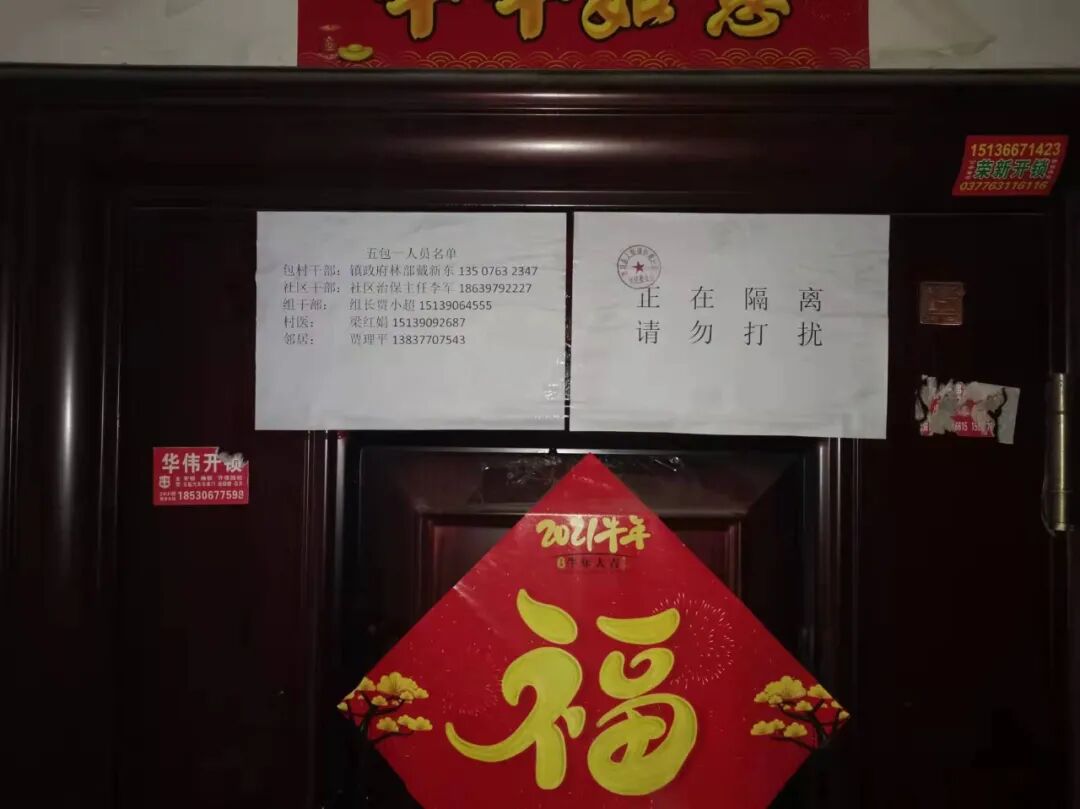 牛牛如意
15136671423
荣新开锁
037763116116
五包一人员名单
包村干部：镇政府林部戴新东 135 0763 2347
社区干部：社区治保主任李军 18639792227
组干部： 组长贾小超 15139064555
村医： 梁红娟 15139092687
邻居： 贾理平 13837707543
正在隔离
请勿打扰
华伟开锁
18530677598
2021牛年
牛年大吉
福